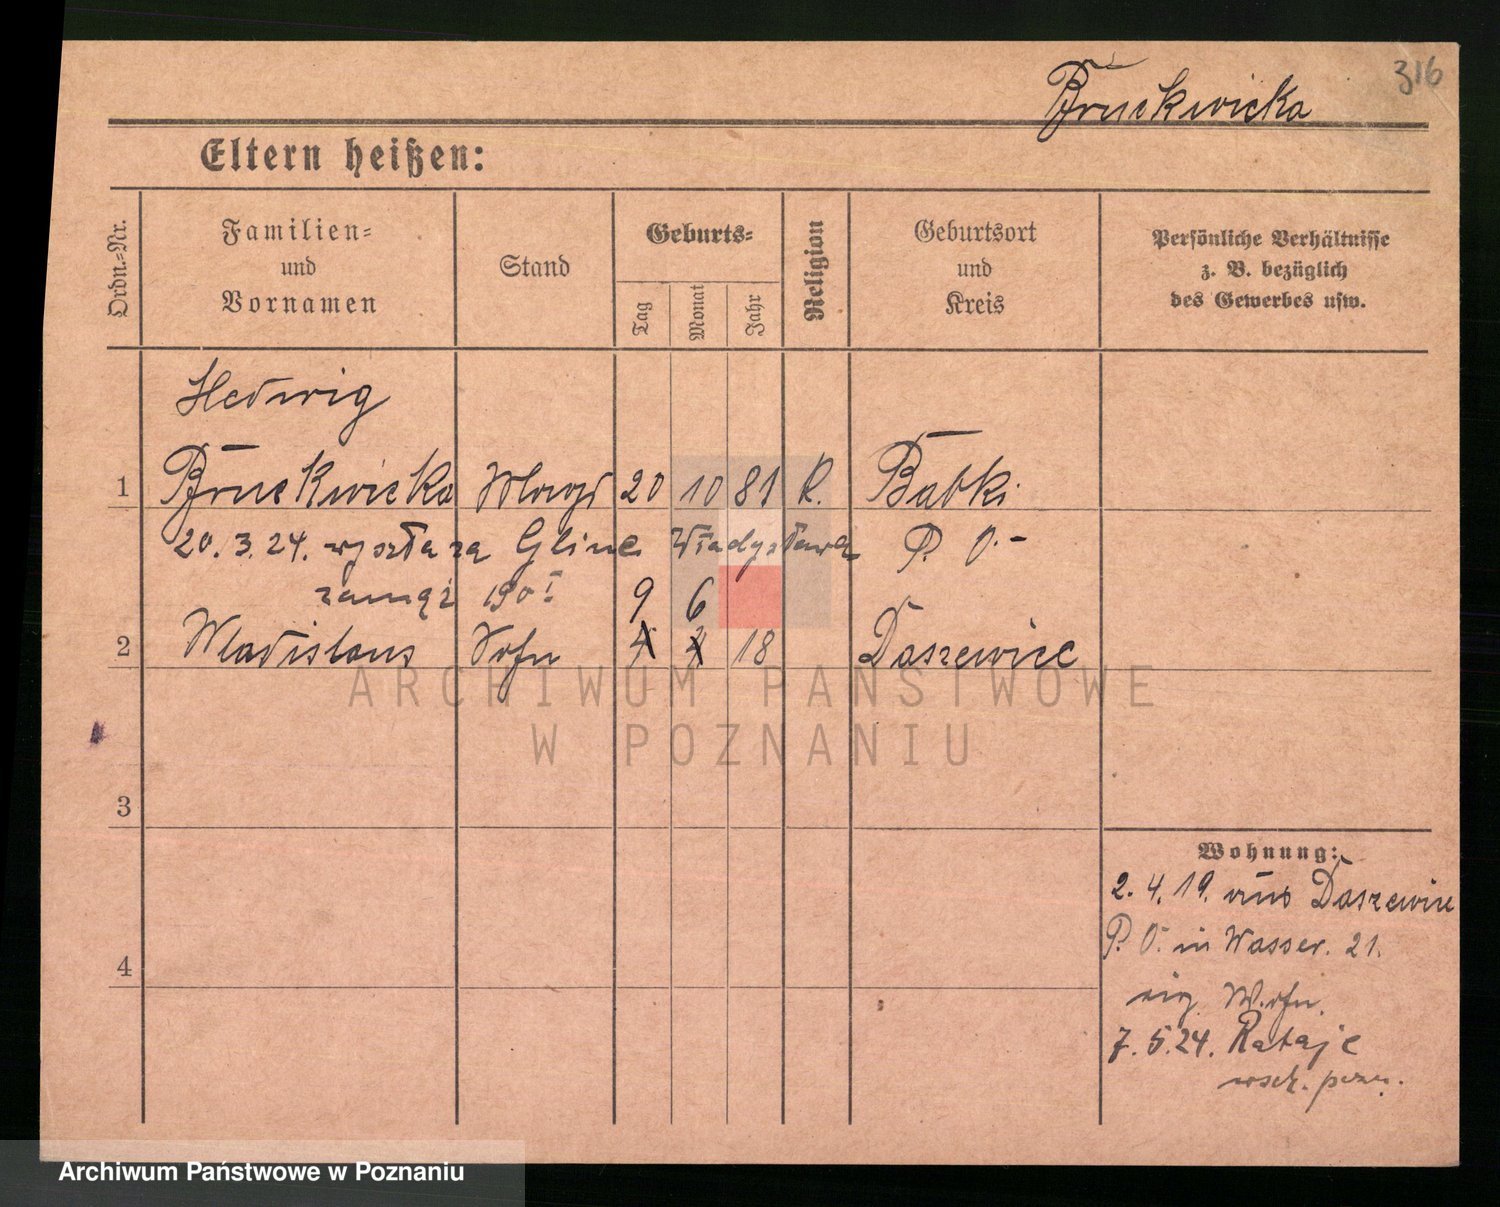 316
Bruckwicka
Eltern heißen:
Ordn.-Nr.
Familien-
und
Vornamen
Stand
Geburts-
Tag
Monat
Jahr
Religion
Geburtsort
und
Kreis
Persönliche Verhältnisse
z. B. bezüglich
des Gewerbes usw.
Hedwig
1 Bruckwicka Magd 20 10 81 R. Babki
20. 3. 24. wyszła za Gline Władysława P. O.
zamąż 9 6
2 Wladislaus Sohn 18 Daszewice
3
4
Wohnung:
2. 4. 19. aus Daszewice
P. O. in Wasser. 21.
eig. Wohn.
7. 5. 24. Rataje
wsch. pozn.
ARCHIWUM PAŃSTWOWE
W POZNANIU
Archiwum Państwowe w Poznaniu